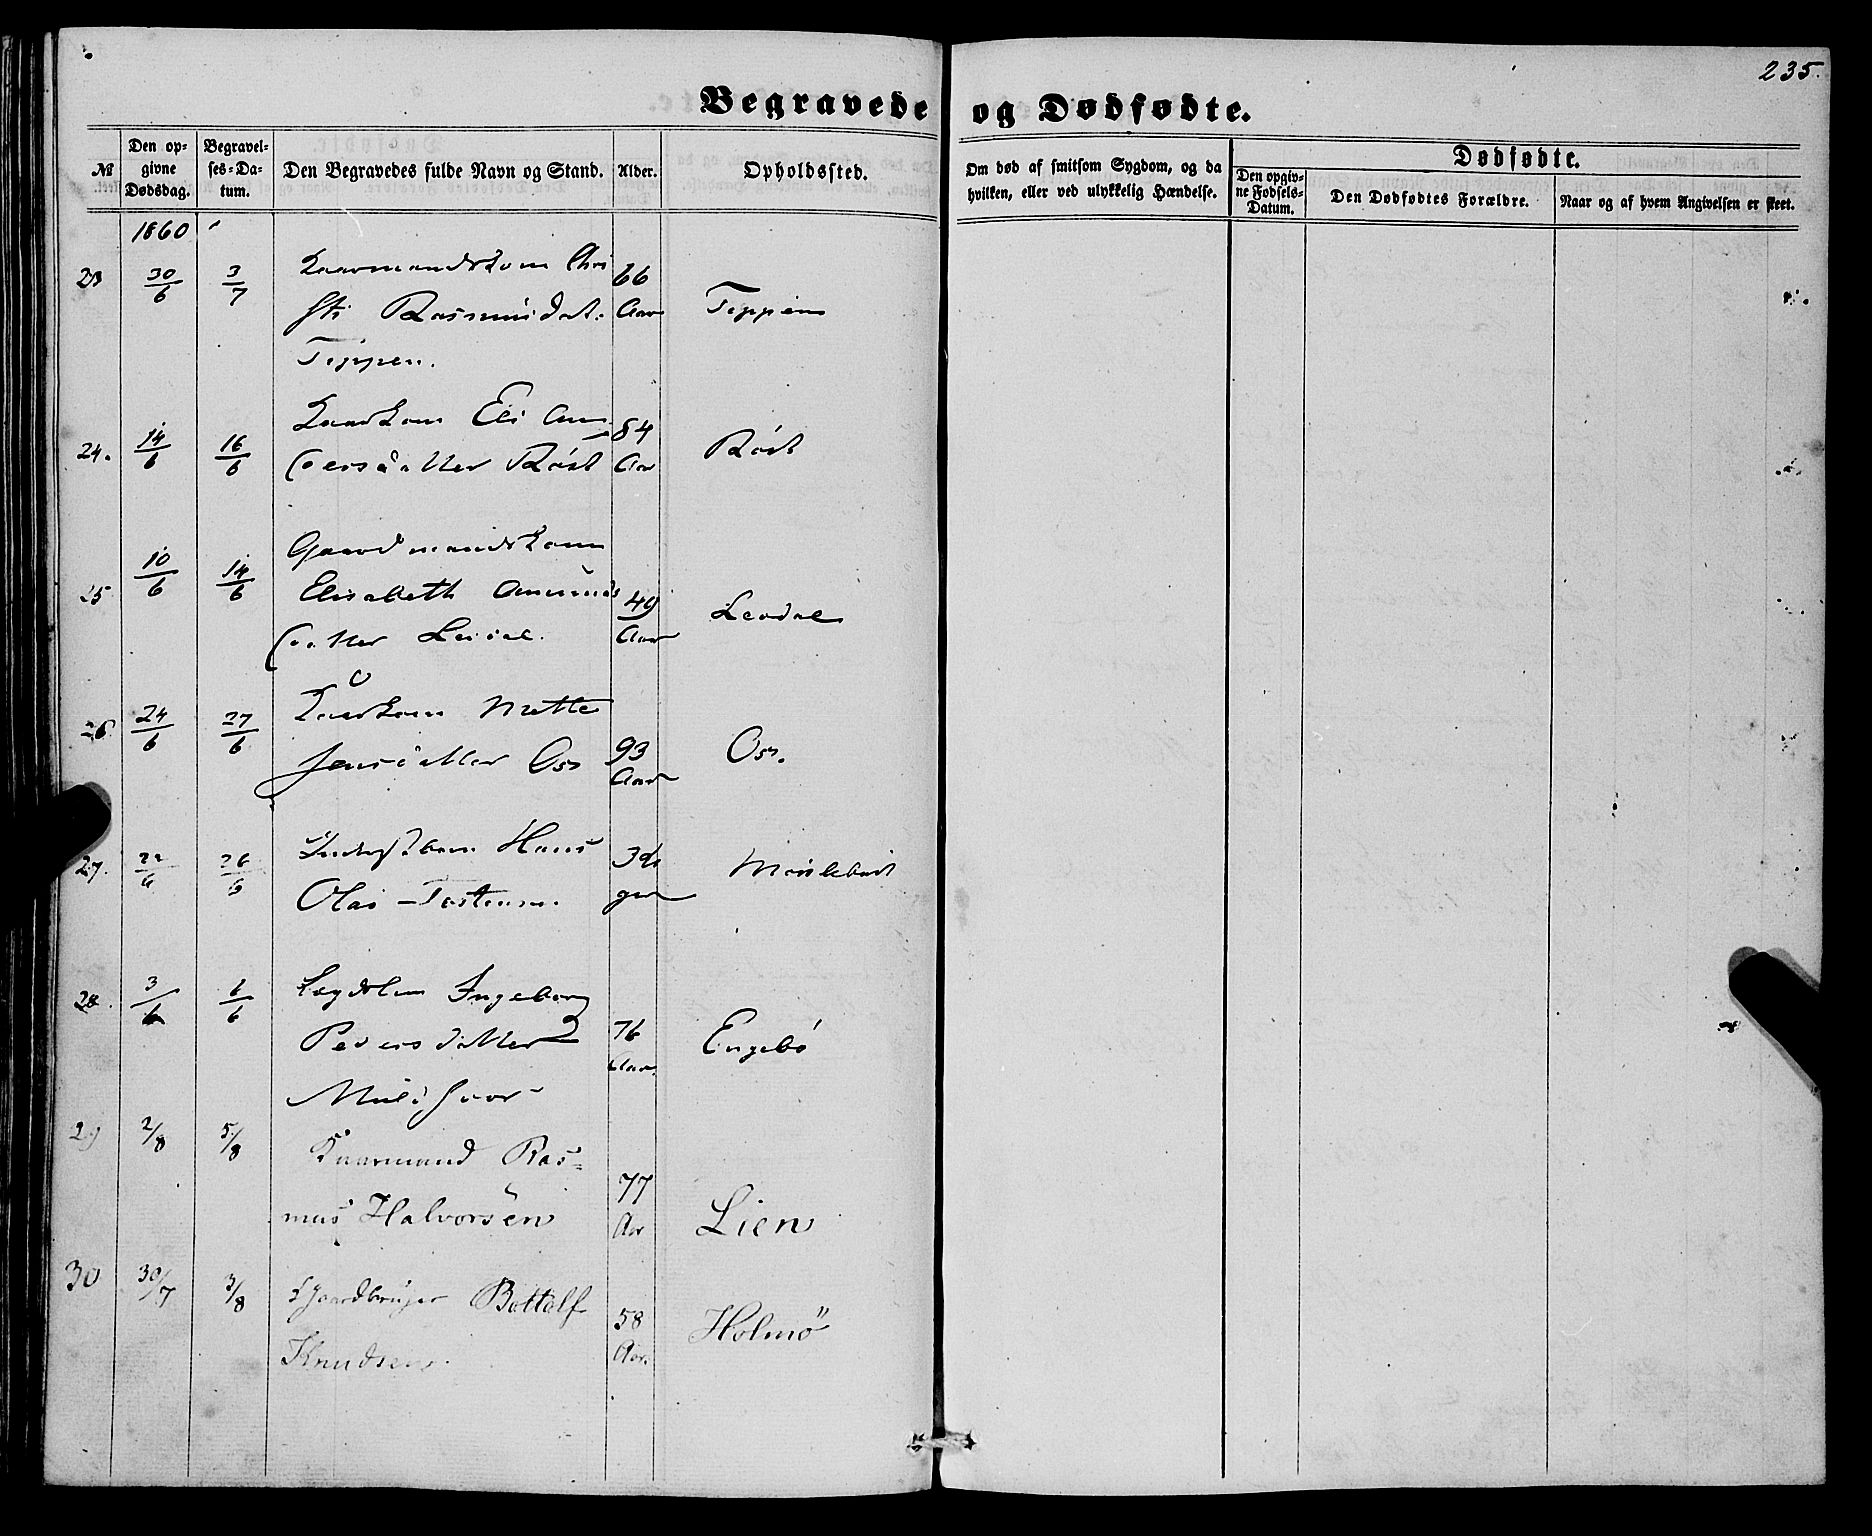 235.
Begravede og Dødfødte.
№
Den opgivne Dødsdag.
Begravelses-Datum.
Den Begravedes fulde Navn og Stand.
Alder.
Opholdssted.
Om død af smitsom Sygdom, og da hvilken, eller ved ulykkelig Hændelse.
Dødfødte.
Den opgivne Fødsels-Datum.
Den Dødfødtes Forældre.
Naar og af hvem Angivelsen er skeet.
1860
23 30/6 3/7 Kaarmandskone Chri 66
sti Rasmusdat. Aar Teppen
Teppen.
24. 14/6 16/6 Kaarkone Eli An 84
dersdatter Röst Aar Röst
25 10/6 14/6 Gaardmandskone
Elisabeth Amunds 49 Levdal
datter Aar
26 24/6 27/6 Kaarkone Mette
Jensdatter Os 93 Aar Os.
27. 22/6 26/6 Hans 3 da
Olai Tostensen ger
28. 3/6 6/6 Lægdslem Ingeborg
Pedersdatter 76 Aar. Engebö
29 2/8 5/8 Kaarmand Ras=
mus Halvorsen 77 Aar Lien
30 30/7 3/8 Gaardbruger Bottolf
Knudsen. 58 Aar. Holmö